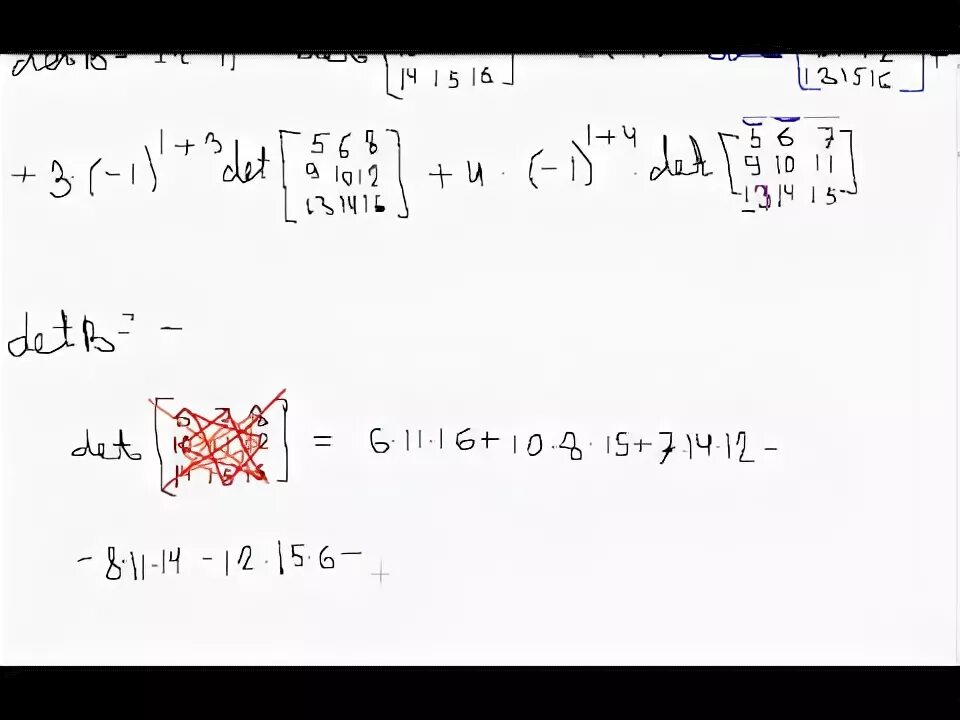 14 15 16 13 15 16 +
+ 3 · (-1)^1+3 det [ 5 6 8
9 10 12
13 14 16 ] + 4 · (-1)^1+4 · det [ 5 6 7
9 10 11
13 14 15 ]
det B = -
det [ 6 7 8
10 11 12
14 15 16 ] = 6·11·16 + 10·8·15 + 7·14·12 -
- 8·11·14 - 12·15·6 -